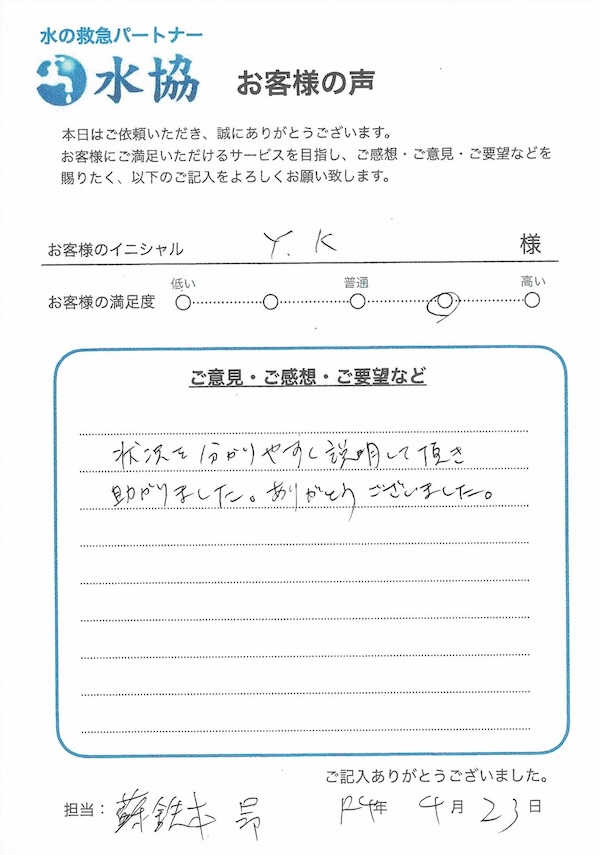 水の救急パートナー
水協 お客様の声
本日はご依頼いただき、誠にありがとうございます。
お客様にご満足いただけるサービスを目指し、ご感想・ご意見・ご要望などを
賜りたく、以下のご記入をよろしくお願い致します。
お客様のイニシャル Y.K 様
低い 普通 高い
お客様の満足度
ご意見・ご感想・ご要望など
状況を分かりやすく説明して頂き
助かりました。ありがとうございました。
ご記入ありがとうございました。
担当: 蘇鉄本 昂 R4年 4月23日